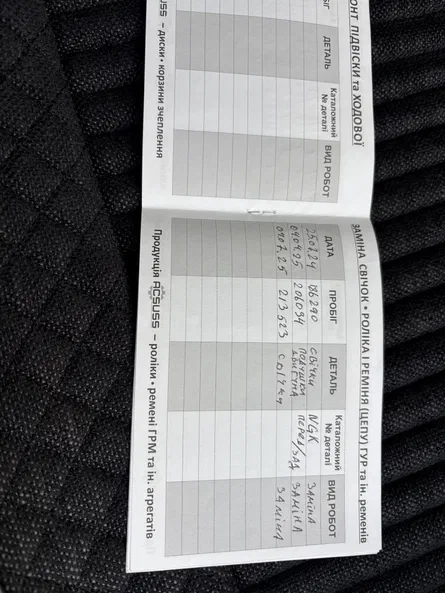 ОНТ ПІДВІСКИ та ХОДОВОЇ
БІГ
ДЕТАЛЬ
Каталожний
№ деталі
ВИД РОБОТ
USS – диски • корзини зчеплення
ЗАМІНА СВІЧОК • РОЛІКА І РЕМІНЯ (ЦЕПУ) ГУР та ін. ременів
ДАТА ПРОБІГ ДЕТАЛЬ Каталожний № деталі ВИД РОБОТ
25.07.24 186290 СВІЧКИ NGK ЗАМІНА
04.04.25 206094 ПОДУШКИ ДВИГУНА ПЕРЕД/ЗАД ЗАМІНА
04.07.25 213523 СВІЧКИ ЗАМІНА
Продукція ACSUSS – роліки • ремені ГРМ та ін. агрегатів